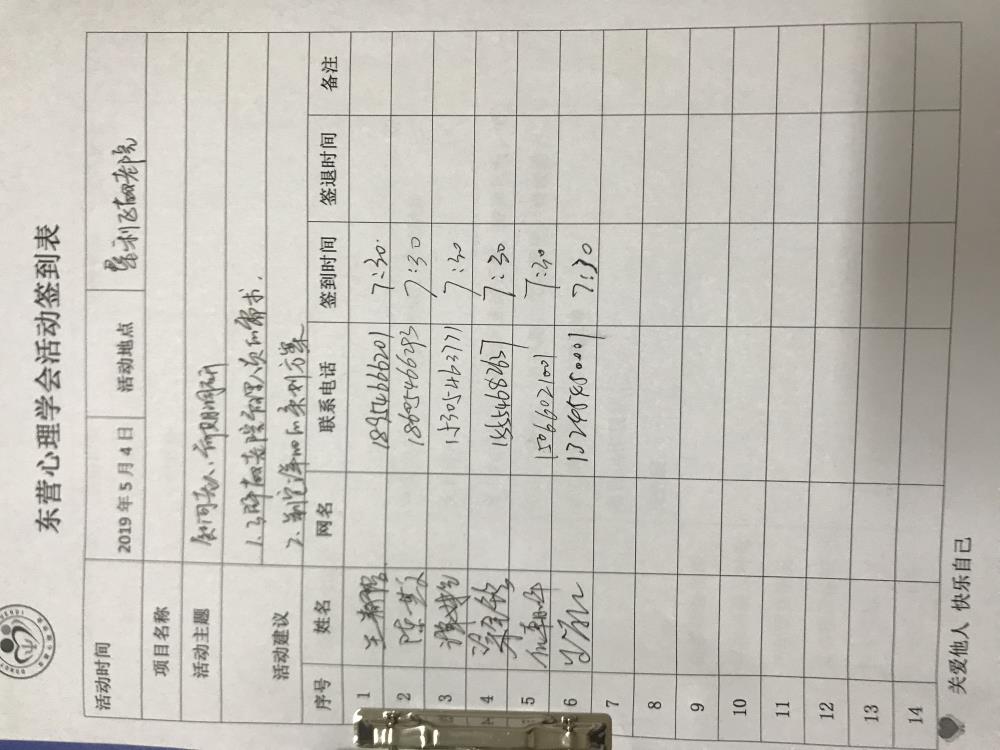 东营心理学会活动签到表
活动时间 2019年5月4日 活动地点 垦利区敬老院
项目名称
活动主题
活动建议 1.了解敬老院管理人员的需求.
2、制定 的 方案
序号 姓名 网名 联系电话 签到时间 签退时间 备注
1 18954666201 7:30.
2 陈 18605466293 7:30
3 15305463777 7:30
4 15554682657 7:30
5 15066021001 7:30
6 13245450001 7:30
7
8
9
10
11
12
13
14
关爱他人 快乐自己